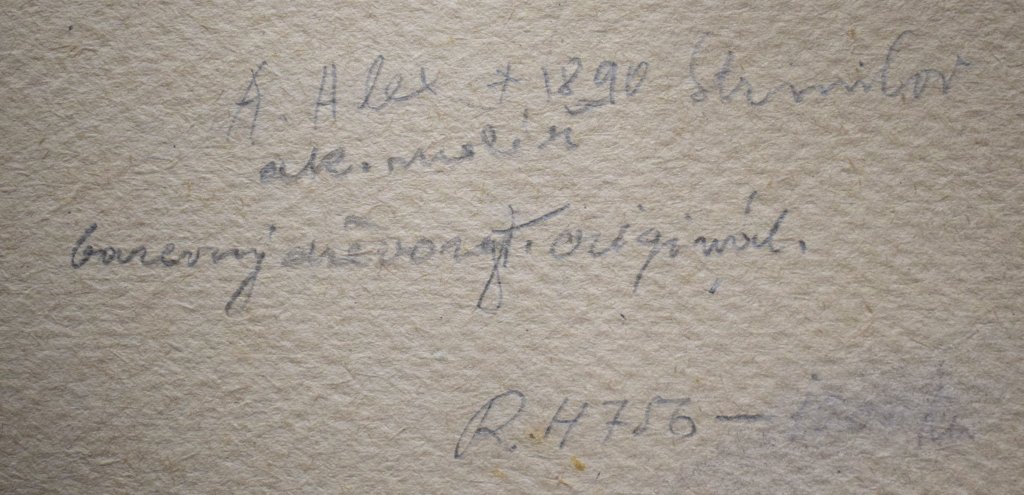 A. Alex + 1890 Strmilov
ak. malíř
barevný dřevoryt. originál.
R. 4756 —